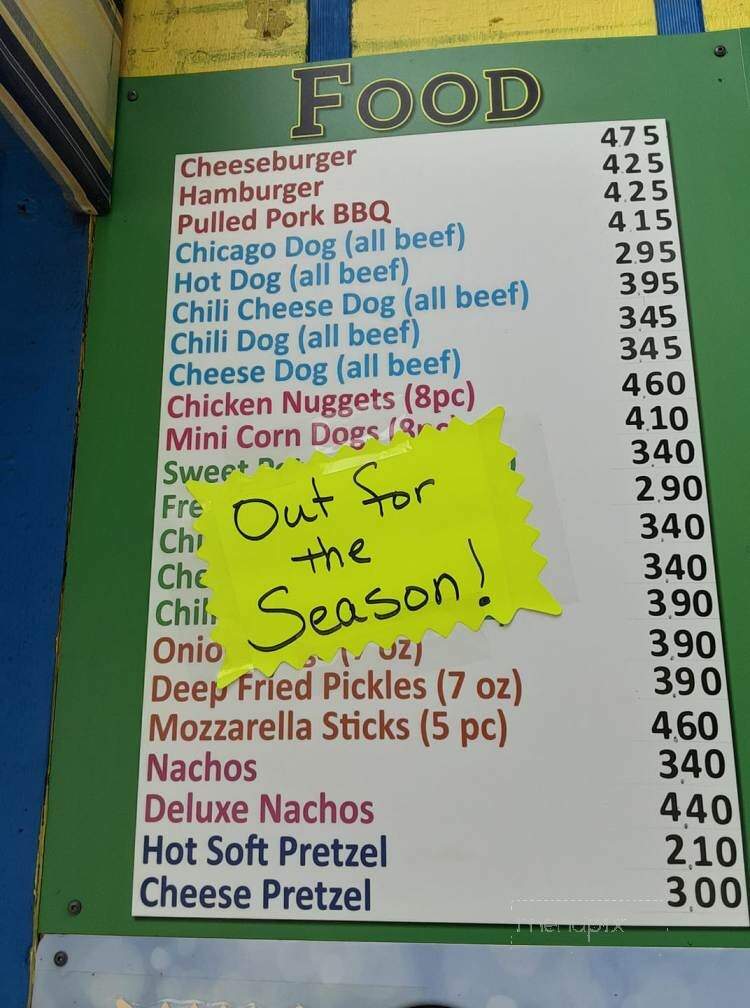 FOOD
Cheeseburger 4.75
Hamburger 4.25
Pulled Pork BBQ 4.25
Chicago Dog (all beef) 4.15
Hot Dog (all beef) 2.95
Chili Cheese Dog (all beef) 3.95
Chili Dog (all beef) 3.45
Cheese Dog (all beef) 3.45
Chicken Nuggets (8pc) 4.60
Mini Corn Dogs 4.10
Sweet 3.40
2.90
3.40
3.40
3.90
3.90
Deep Fried Pickles (7 oz) 3.90
Mozzarella Sticks (5 pc) 4.60
Nachos 3.40
Deluxe Nachos 4.40
Hot Soft Pretzel 2.10
Cheese Pretzel 3.00
Out for
the
Season!
menupix